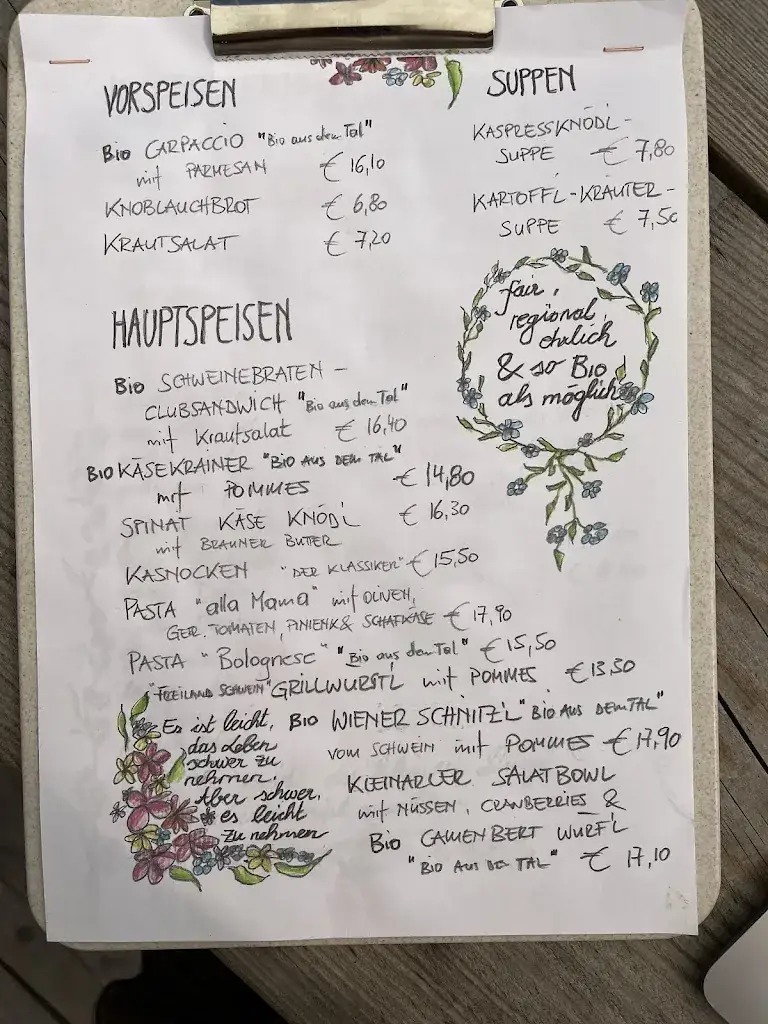 VORSPEISEN
Bio CARPACCIO "Bio aus dem Tal"
mit PARMESAN € 16,10
KNOBLAUCHBROT € 6,80
KRAUTSALAT € 7,20
SUPPEN
KASPRESSKNÖDL-
SUPPE € 7,80
KARTOFFL-KRÄUTER-
SUPPE € 7,50
fair,
regional,
ehrlich
& so Bio
als möglich
HAUPTSPEISEN
Bio SCHWEINEBRATEN-
CLUBSANDWICH "Bio aus dem Tal"
mit Krautsalat € 16,40
BIO KÄSEKRAINER "BIO AUS DEM TAL"
mit POMMES € 14,80
SPINAT KÄSE KNÖDL € 16,30
mit BRAUNER BUTTER
KASNOCKEN "DER KLASSIKER" € 15,50
PASTA "alla Mama" mit OLIVEN,
GER. TOMATEN, PINIENK & SCHAFKÄSE € 17,90
PASTA "Bolognese" "Bio aus dem Tal" € 15,50
"FREILAND SCHWEIN" GRILLWURSTL mit POMMES € 13,50
BIO WIENER SCHNITZ'L "BIO AUS DEM TAL"
VOM SCHWEIN mit POMMES € 17,90
KLEINARLER SALATBOWL
mit NÜSSEN, CRANBERRIES &
Bio CAMENBERT WÜRF'L
"BIO AUS DEM TAL" € 17,10
Es ist leicht,
das Leben
schwer zu
nehmen.
Aber schwer,
es leicht
zu nehmen